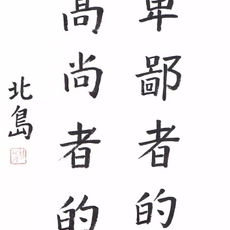 卑鄙者的
高尚者的
北島